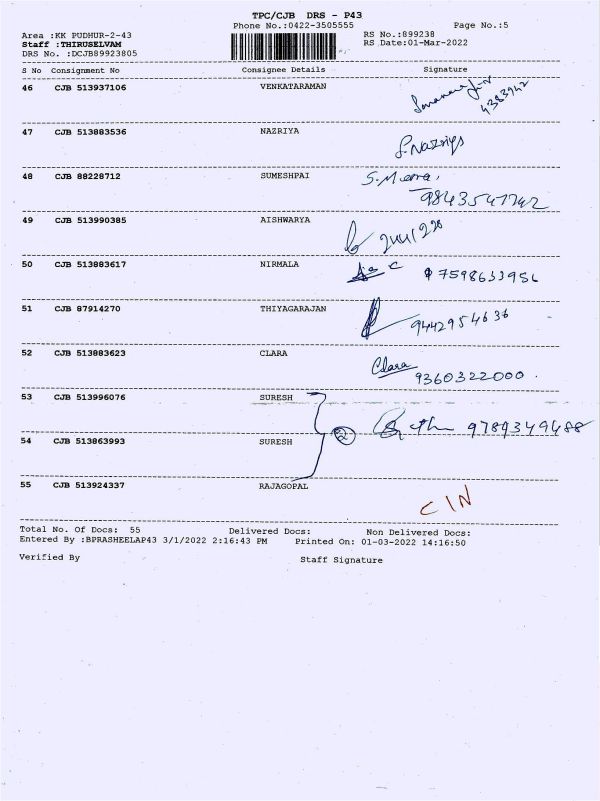 TPC/CJB DRS - P43
Phone No.:0422-3505555 Page No.:5
Area :KK PUDHUR-2-43 RS No.:899238
Staff :THIRUSELVAM RS Date:01-Mar-2022
DRS No. :DCJB89923805
S No Consignment No Consignee Details Signature
46 CJB 513937106 VENKATARAMAN
4383942
47 CJB 513883536 NAZRIYA
S.Nazriya
48 CJB 88228712 SUMESHPAI S.Meena,
49 CJB 513990385 AISHWARYA
50 CJB 513883617 NIRMALA
7598633956
51 CJB 87914270 THIYAGARAJAN
9442954636
52 CJB 513883623 CLARA Clara
9360322000.
53 CJB 513996076 SURESH
2 9789349488
54 CJB 513863993 SURESH
55 CJB 513924337 RAJAGOPAL
CIN
Total No. Of Docs: 55 Delivered Docs: Non Delivered Docs:
Entered By :BPRASHEELAP43 3/1/2022 2:16:43 PM Printed On: 01-03-2022 14:16:50
Verified By Staff Signature